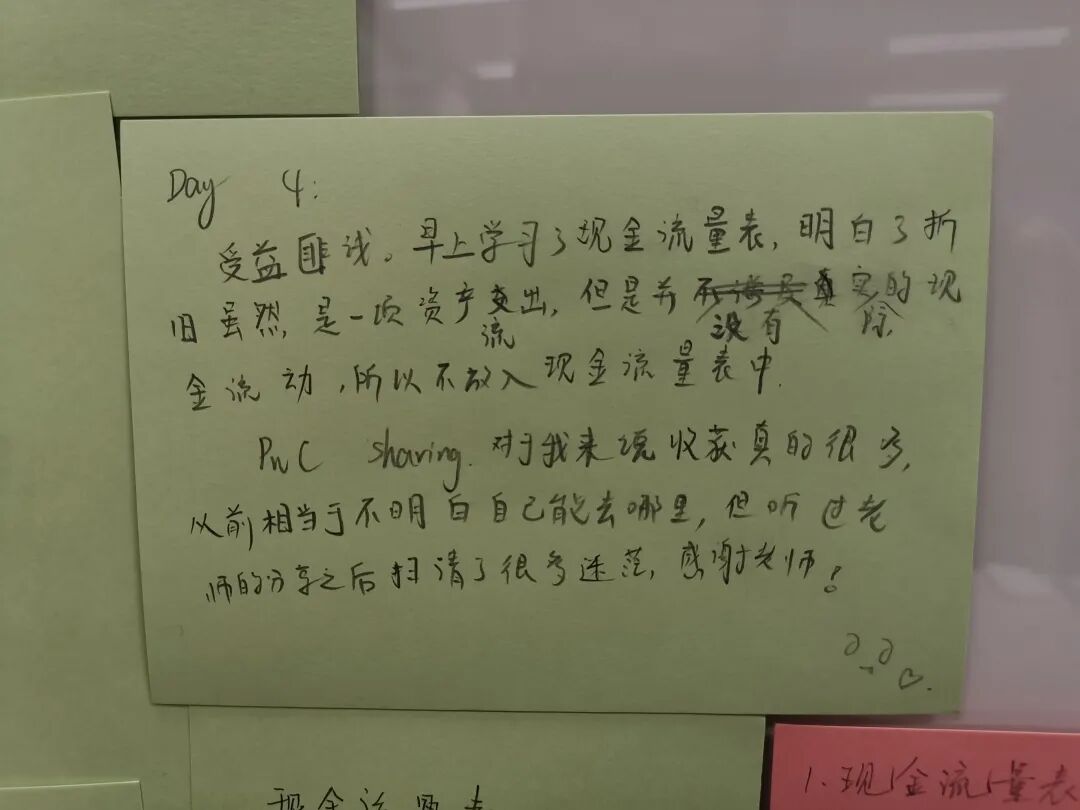 Day 4:
受益匪浅。早上学习了现金流量表,明白了折
旧虽然,是一项资产支出,但是并实的现
流 没有 际
金流动,所以不放入现金流量表中.
PwC sharing. 对于我来说收获真的很多,
从前相当于不明白自己能去哪里,但听过老
师的分享之后扫清了很多迷茫,感谢老师!
1.现金流量表